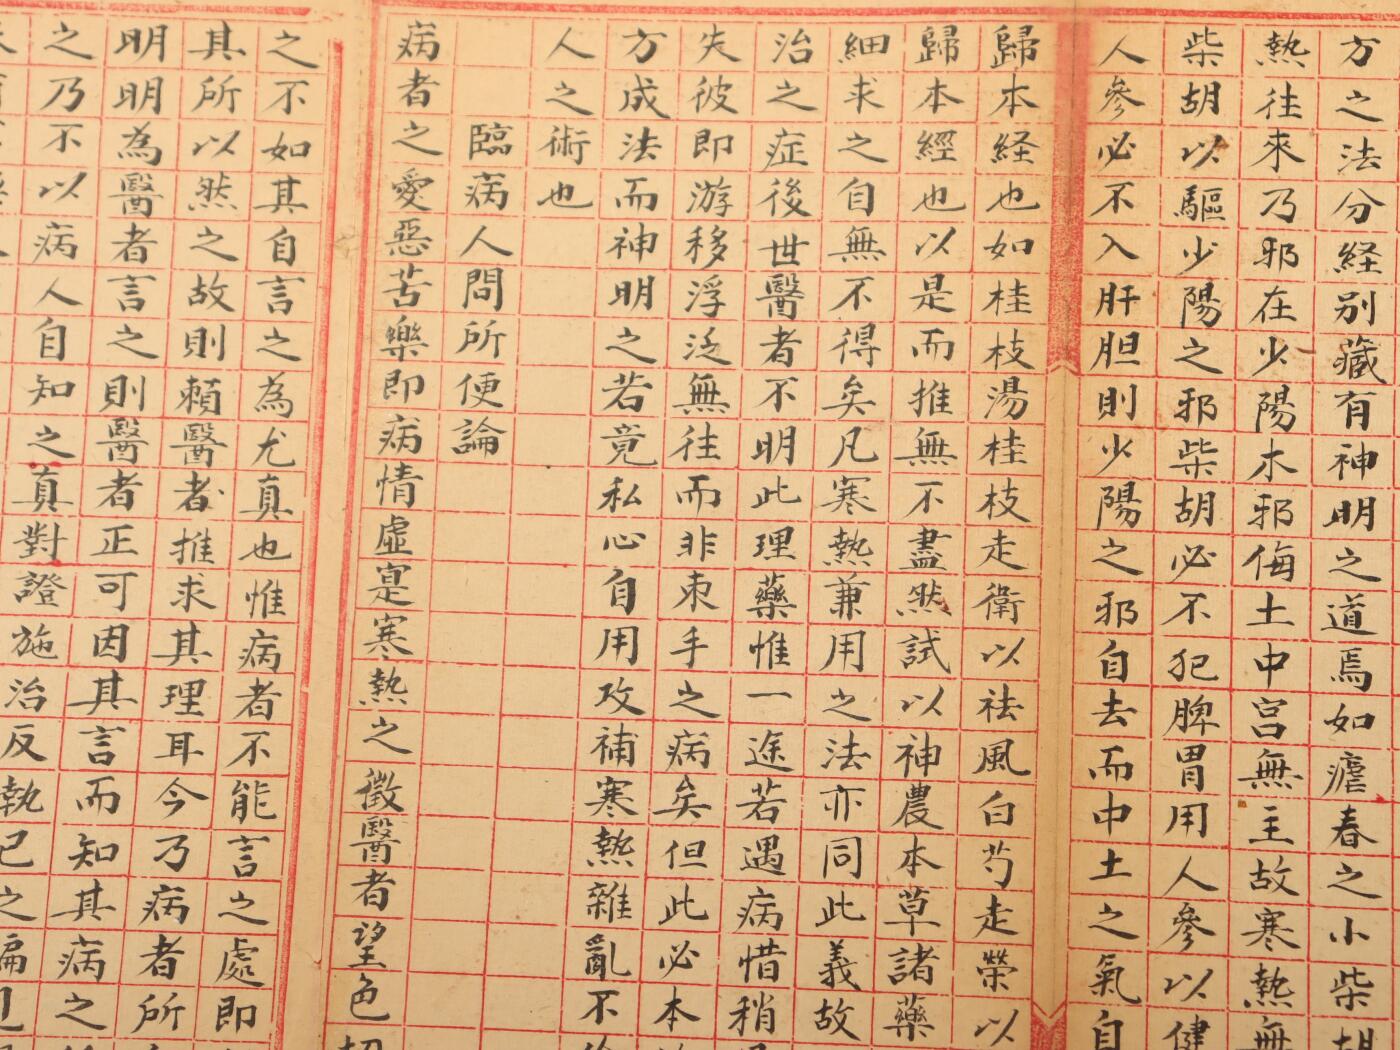 方之法分経別藏有神明之道焉如瘧春之小柴胡
熱往來乃邪在少陽木邪侮土中宮無主故寒熱無
柴胡以驅少陽之邪柴胡必不犯脾胃用人參以健
人參必不入肝胆則少陽之邪自去而中土之氣自
歸本経也如桂枝湯桂枝走衛以祛風白芍走榮以
歸本經也以是而推無不盡然試以神農本草諸藥
細求之自無不得矣凡寒熱兼用之法亦同此義故
治之症後世醫者不明此理藥惟一途若遇病惜稍
失彼即游移浮泛無往而非束手之病矣但此必本
方成法而神明之若竟私心自用攻補寒熱雜亂不
人之術也
臨病人問所便論
病者之愛惡苦樂即病情虛寔寒熱之徵醫者望色
之不如其自言之為尤真也惟病者不能言之處即
其所以然之故則賴醫者推求其理耳今乃病者所
明明為醫者言之則醫者正可因其言而知其病之
之乃不以病人自知之真對證施治反執已之偏見